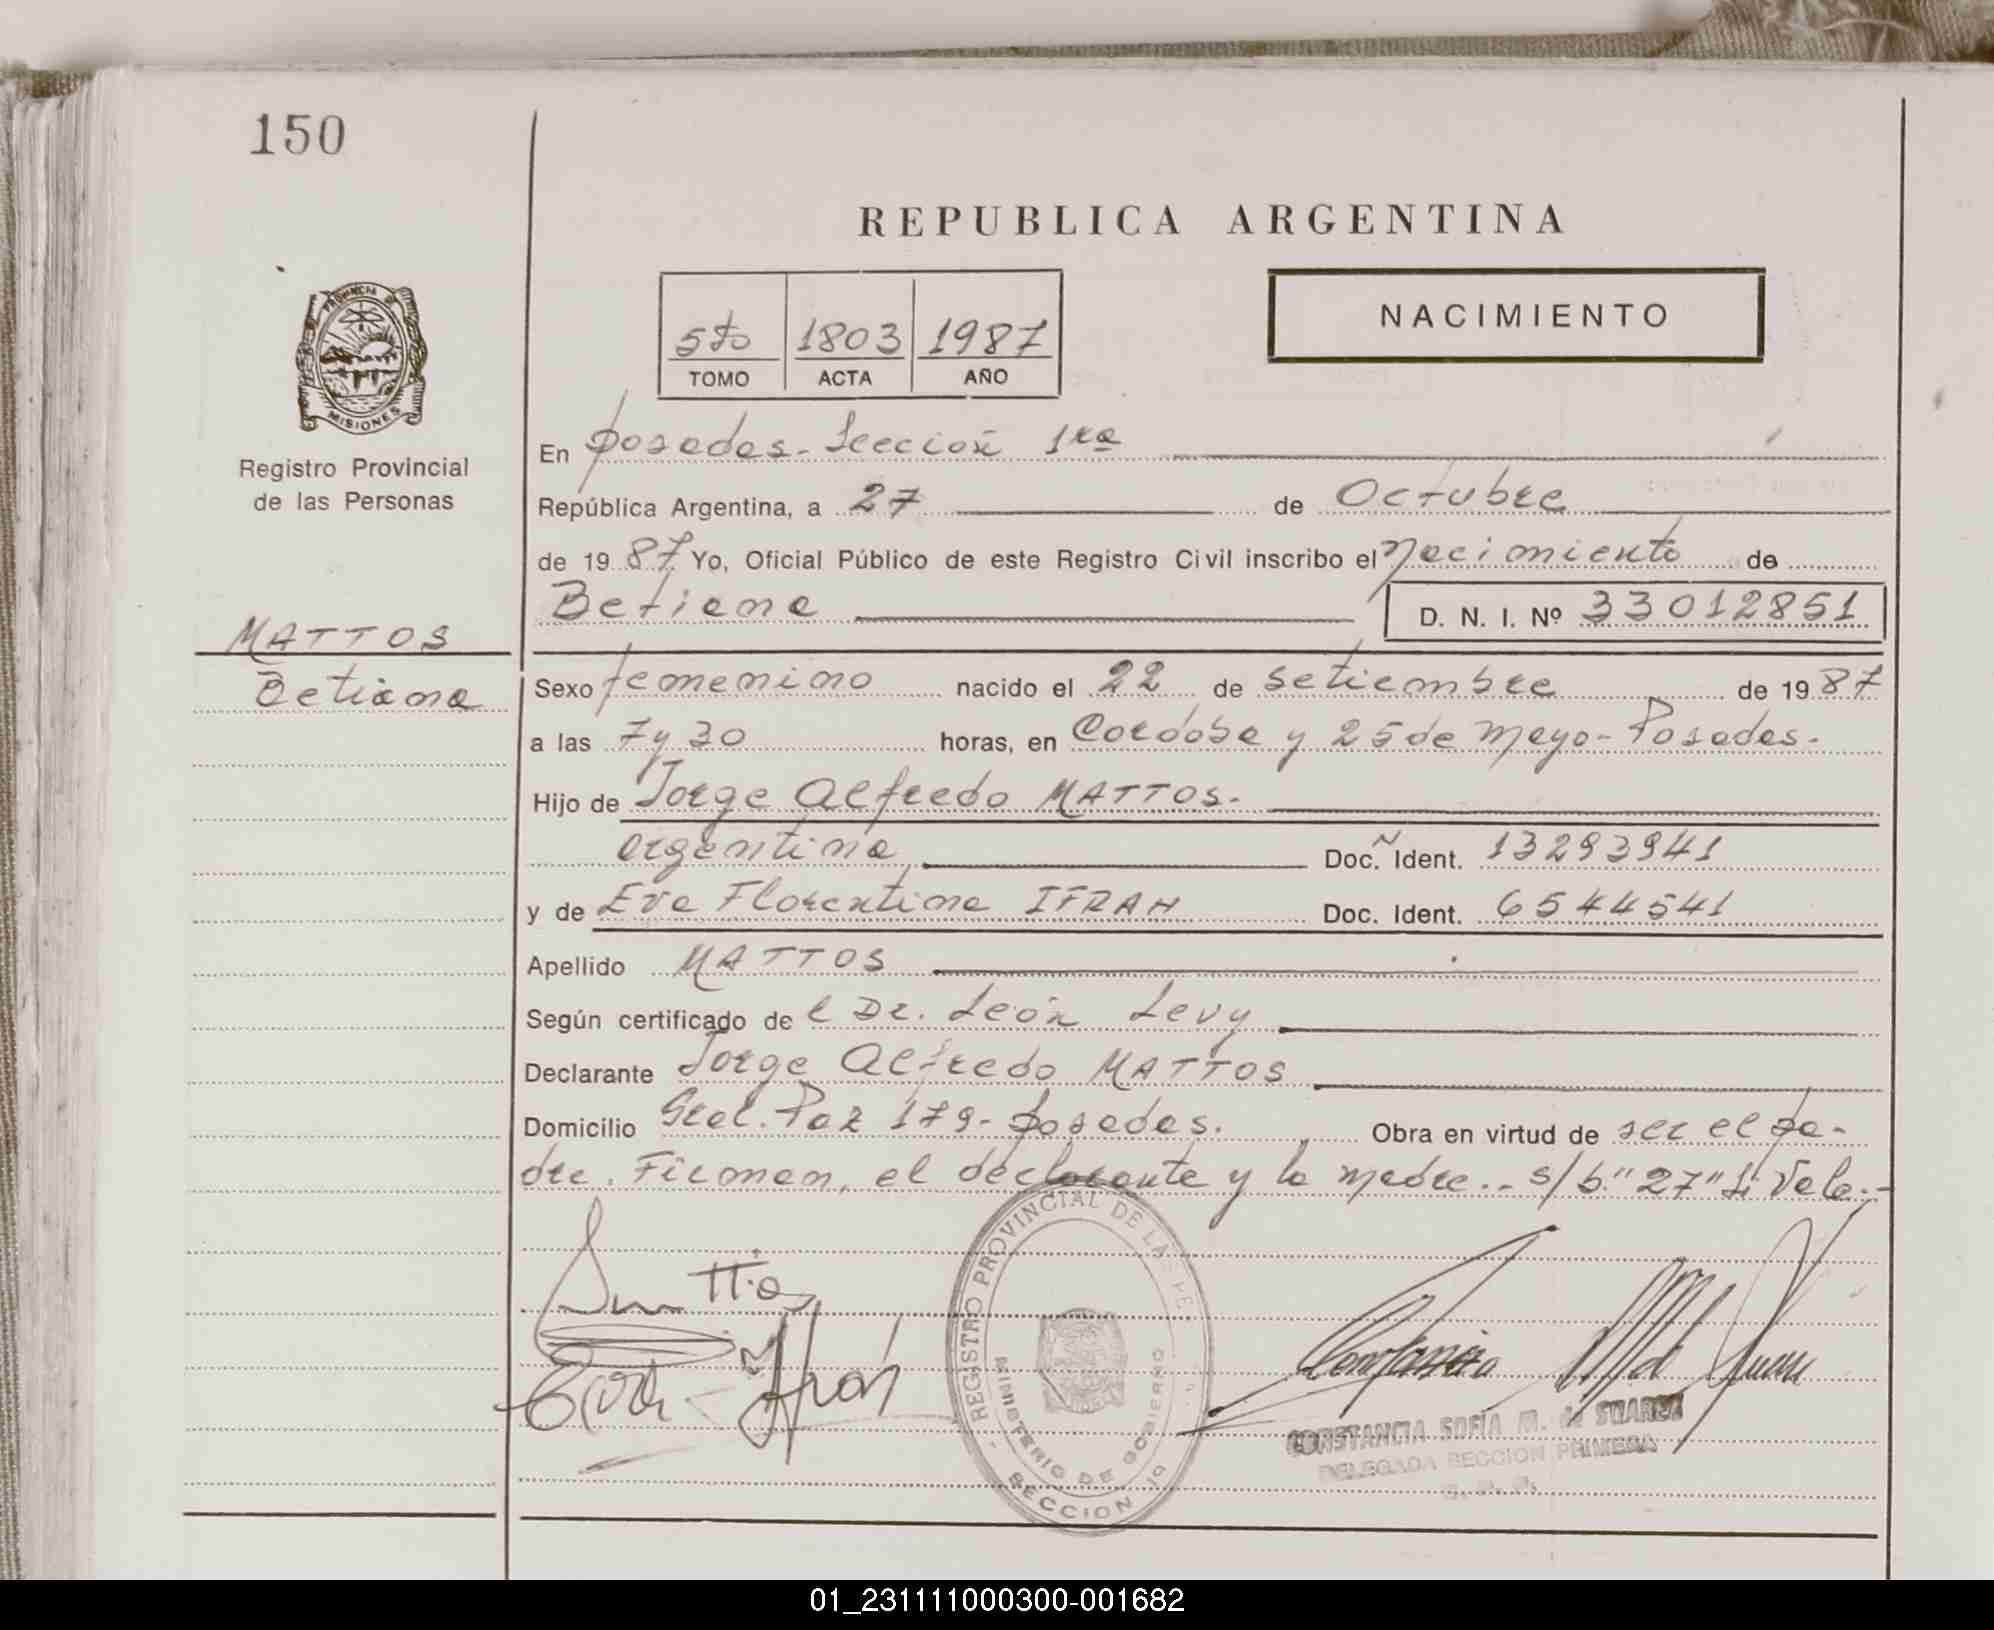 150
REPUBLICA ARGENTINA
NACIMIENTO
5to 1803 1987
TOMO ACTA AÑO
PROVINCIA DE
MISIONES
Registro Provincial
de las Personas
MATTOS
Betiana
En Posadas - Sección 1ra
República Argentina, a 27 de Octubre
de 19 87 Yo, Oficial Público de este Registro Civil inscribo el Nacimiento de
Betiana D. N. I. Nº 33012851
Sexo femenino nacido el 22 de setiembre de 19 87
a las 7 y 30 horas, en Cordoba y 25 de Mayo - Posadas.
Hijo de Jorge Alfredo MATTOS.
argentina Doc. Ident. 13293941
y de Eva Florentina IFRAN Doc. Ident. 6544541
Apellido MATTOS
Según certificado de l Dr. León Levy
Declarante Jorge Alfredo MATTOS
Domicilio Gral. Paz 179 - Posadas. Obra en virtud de ser el pa-
dre. Firman, el declarante y la madre.. s/b "27" Si Vale.-
REGISTRO PROVINCIAL DE LAS PE
MINISTERIO DE GOBIERNO
SECCION 1a
CONSTANCIA SOFIA M. de SUAREZ
DELEGADA SECCION PRIMERA
01_231111000300-001682